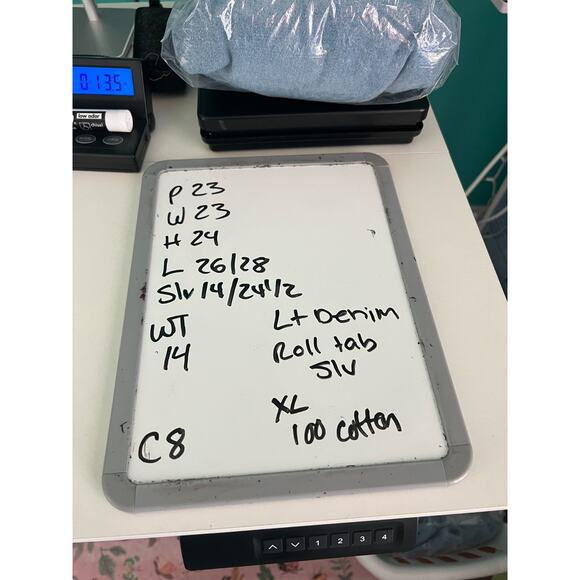 013.5
low odor
P 23
W 23
H 24
L 26/28
Slv 14/24 1/2
WT
14
Lt Denim
Roll tab
Slv
XL
100 cotton
C8
1 2 3 4